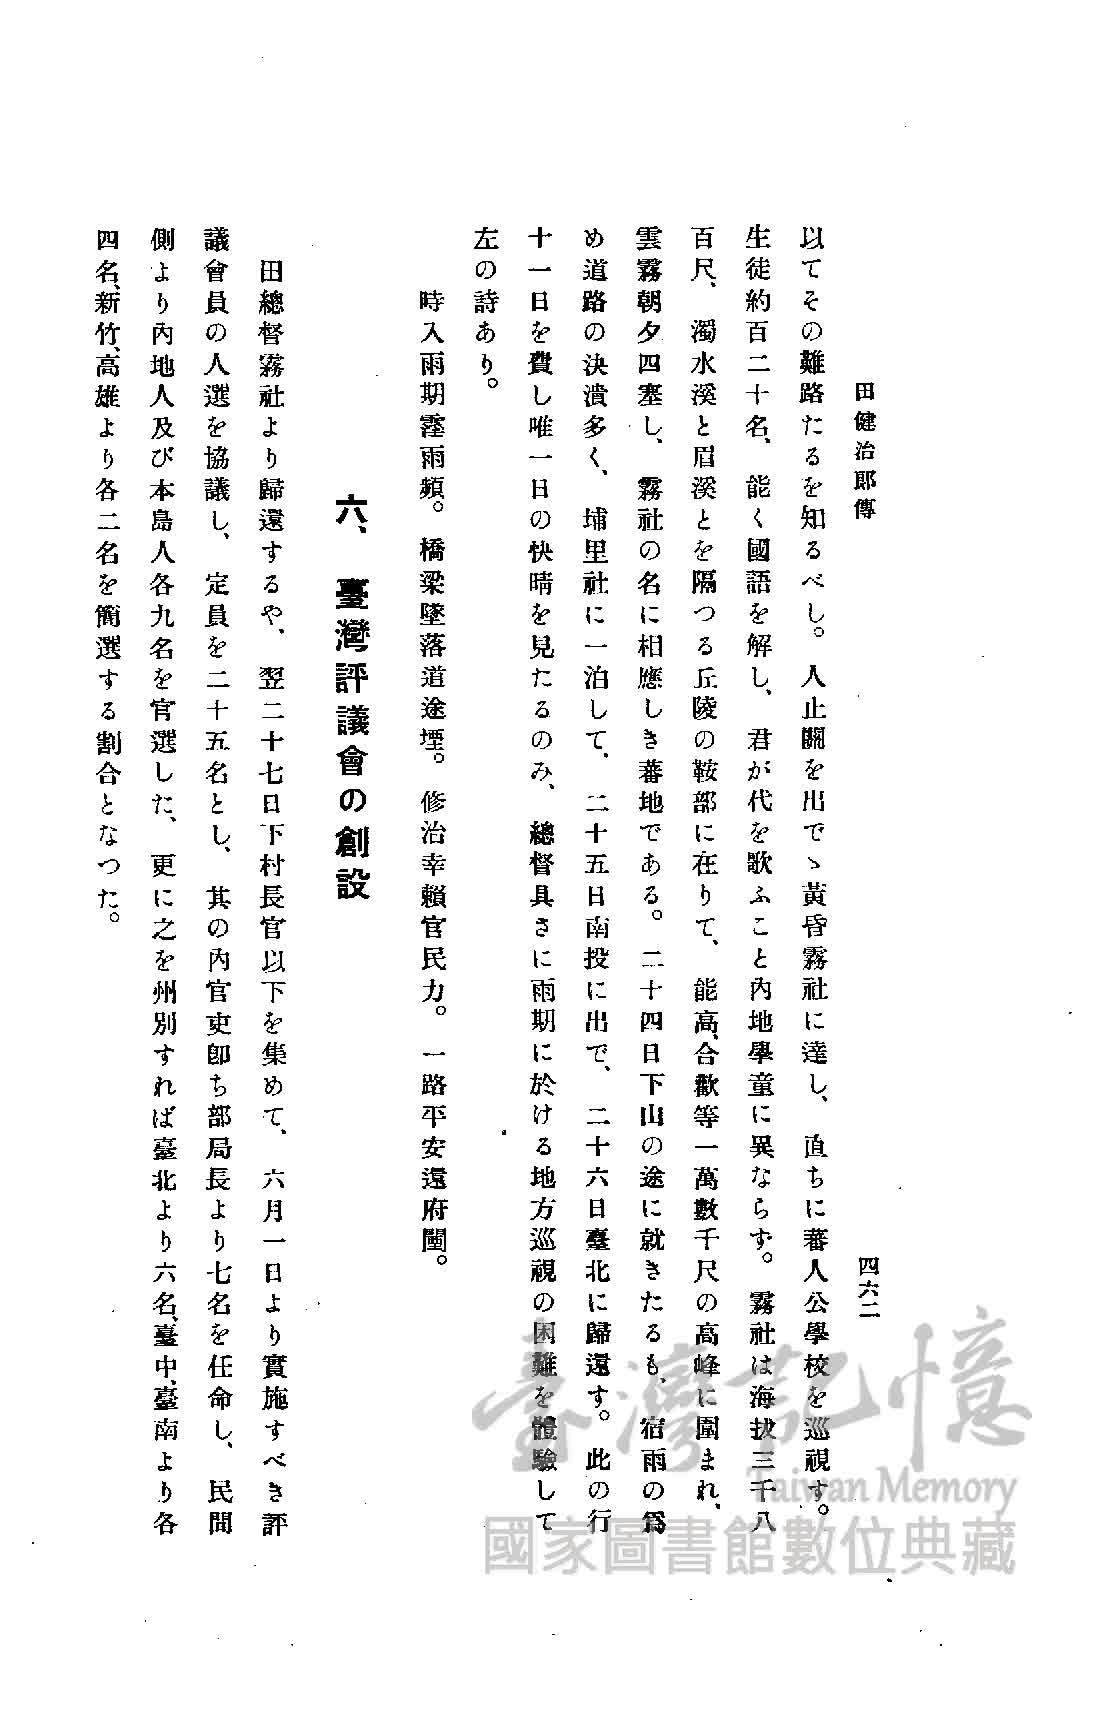 田健治郎傳
四六二
以てその難路たるを知るべし。人止關を出でゝ黃昏霧社に達し、直ちに蕃人公學校を巡視す。
生徒約百二十名、能く國語を解し、君が代を歌ふこと內地學童に異ならず。霧社は海拔三千八
百尺、濁水溪と眉溪とを隔つる丘陵の鞍部に在りて、能高、合歡等一萬數千尺の高峰に圍まれ、
雲霧朝夕四塞し、霧社の名に相應しき蕃地である。二十四日下山の途に就きたるも、宿雨の爲
め道路の決潰多く、埔里社に一泊して、二十五日南投に出で、二十六日臺北に歸還す。此の行
十一日を費し唯一日の快晴を見たるのみ、總督具さに雨期に於ける地方巡視の困難を體驗して
左の詩あり。
時入雨期霪雨頻。橋梁墜落道途堙。修治幸賴官民力。一路平安還府闉。
六、臺灣評議會の創設
田總督霧社より歸還するや、翌二十七日下村長官以下を集めて、六月一日より實施すべき評
議會員の人選を協議し、定員を二十五名とし、其の內官吏卽ち部局長より七名を任命し、民間
側より內地人及び本島人各九名を官選した、更に之を州別すれば臺北より六名、臺中、臺南より各
四名、新竹、高雄より各二名を簡選する割合となつた。
臺灣記憶
Taiwan Memory
國家圖書館數位典藏